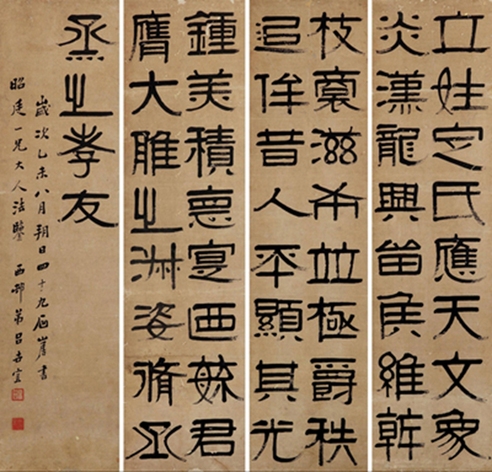 立姓定氏應天文象
炎漢龍興留侯維幹
枝裔滋布並極爵秩
追侔昔人丕顯其光
鍾美積悳寔毓君
膺大雅之淑姿脩烝
烝之孝友
歲次乙未八月朔日四十九書
昭廷一兄大人法鑒 西邨弟呂世宜